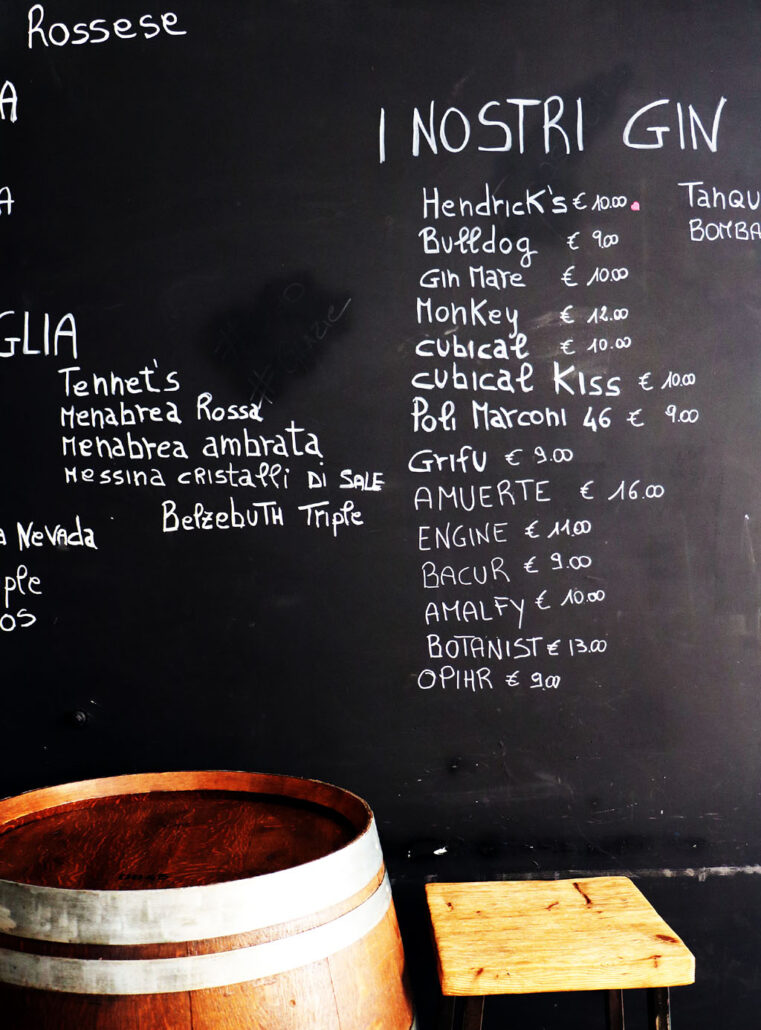 Rossese
A
A
GLIA
Tennet's
Menabrea Rossa
Menabrea ambrata
Messina cristalli Di SALE
BelzebuTH Triple
a NeVAda
ple
os
I NOSTRI GIN
Hendrick's € 10.00
Bulldog € 9.00
Gin Mare € 10.00
MonKey € 12.00
cubical € 10.00
cubical Kiss € 10.00
Poli Marconi 46 € 9.00
Grifu € 9.00
AMUERTE € 16.00
ENGINE € 11.00
BACUR € 9.00
AMALFY € 10.00
BOTANIST € 13.00
OPIHR € 9.00
TanQU
BOMBA